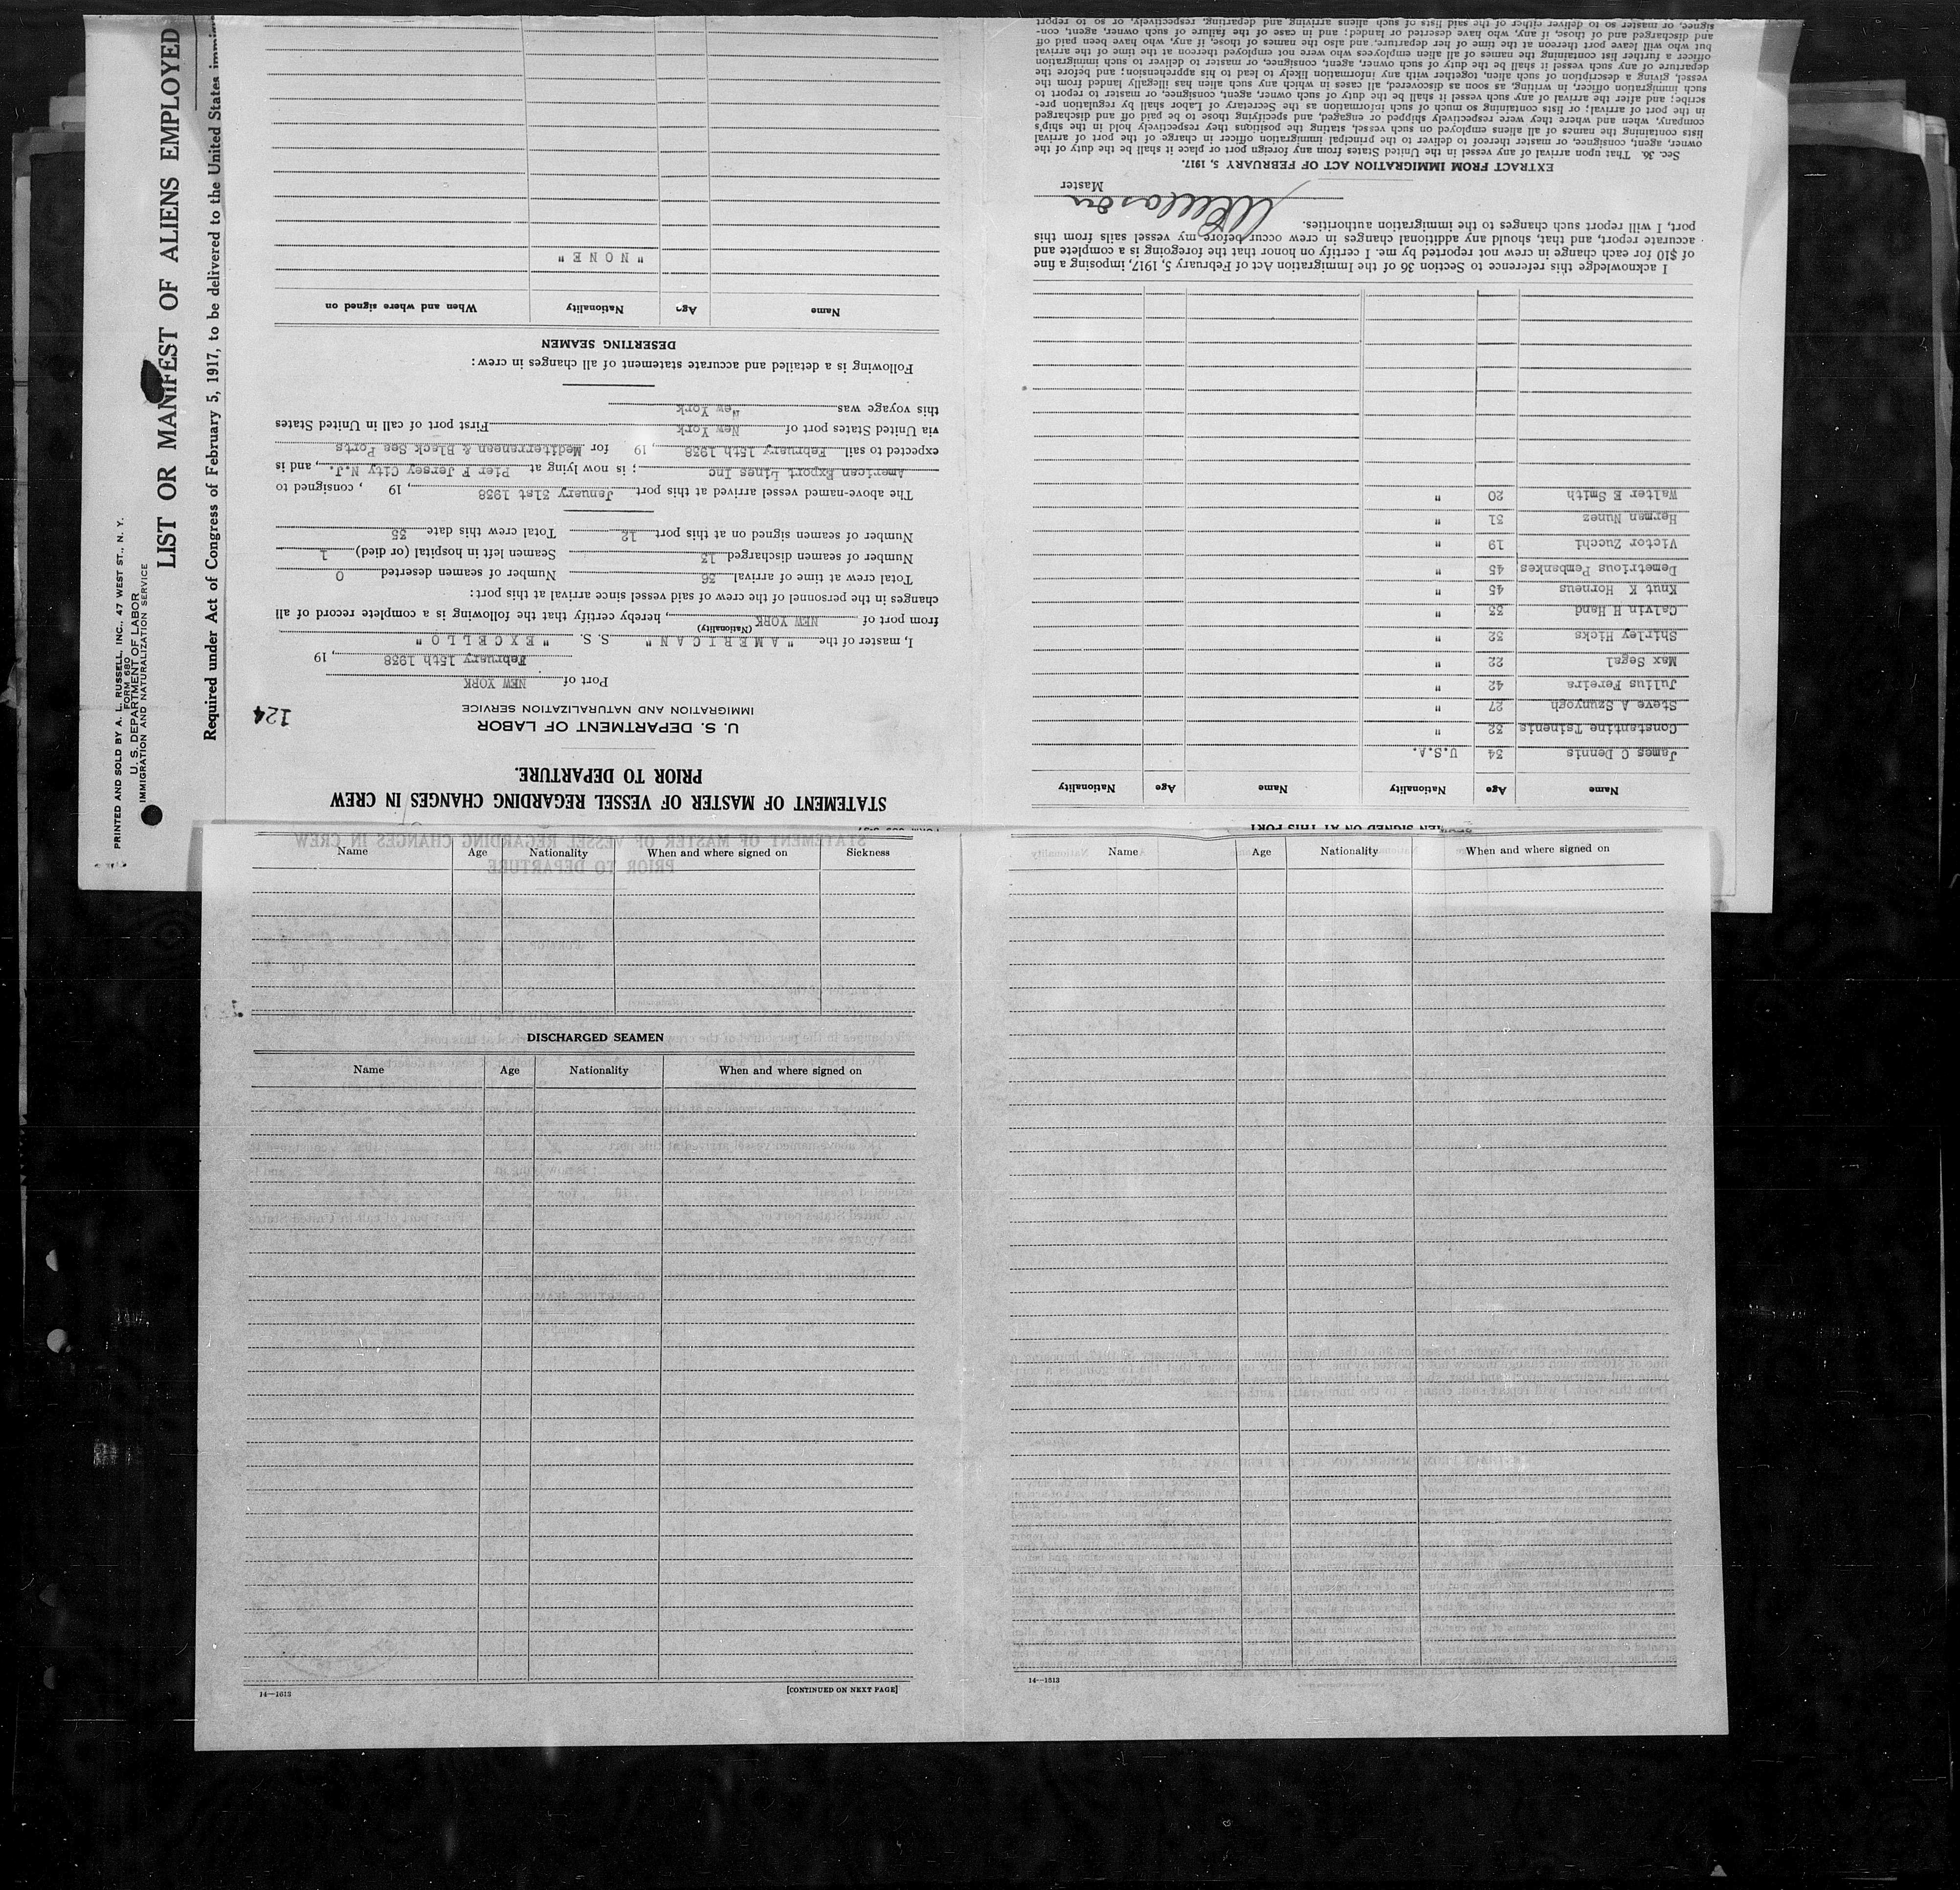 PRINTED AND SOLD BY A. L. RUSSELL, INC., 47 WEST ST., N. Y.
FORM 680
U. S. DEPARTMENT OF LABOR
IMMIGRATION AND NATURALIZATION SERVICE
LIST OR MANIFEST OF ALIENS EMPLOYED
Required under Act of Congress of February 5, 1917, to be delivered to the United States
STATEMENT OF MASTER OF VESSEL REGARDING CHANGES IN CREW
PRIOR TO DEPARTURE.
U. S. DEPARTMENT OF LABOR
IMMIGRATION AND NATURALIZATION SERVICE
124
Port of NEW YORK
February 15th 1938, 19
I, master of the "AMERICAN" S. S. "EXCELLO"
(Nationality)
from port of NEW YORK, hereby certify that the following is a complete record of all
changes in the personnel of the crew of said vessel since arrival at this port:
Total crew at time of arrival 36 Number of seamen deserted 0
Number of seamen discharged 13 Seamen left in hospital (or died) 1
Number of seamen signed on at this port 12 Total crew this date 35
The above-named vessel arrived at this port January 31st 1938, 19 , consigned to
American Export Lines Inc ; is now lying at Pier F Jersey City N.J., and is
expected to sail February 15th 1938, 19 for Mediterranean & Black Sea Ports
via United States port of New York First port of call in United States
this voyage was New York
Following is a detailed and accurate statement of all changes in crew:
DESERTING SEAMEN
Name Age Nationality When and where signed on
"NONE"
Name Age Nationality Name Age Nationality
James C Dennis 34 U.S.A.
Constantine Tsinenis 32 "
Steve A Szunyogh 27 "
Julius Pereira 42 "
Max Segal 22 "
Shirley Hicks 32 "
Calvin H Hand 33 "
Knut K Horneus 45 "
Demetrious Pembankes 45 "
Victor Zucchi 19 "
Herman Nunez 31 "
Walter E Smith 20 "
I acknowledge this reference to Section 36 of the Immigration Act of February 5, 1917, imposing a fine
of $10 for each change in crew not reported by me. I certify on honor that the foregoing is a complete and
accurate report, and that, should any additional changes in crew occur before my vessel sails from this
port, I will report such changes to the immigration authorities.
Master
EXTRACT FROM IMMIGRATION ACT OF FEBRUARY 5, 1917.
Sec. 36. That upon arrival of any vessel in the United States from any foreign port or place it shall be the duty of the
owner, agent, consignee, or master thereof to deliver to the principal immigration officer in charge of the port of arrival
lists containing the names of all aliens employed on such vessel, stating the positions they respectively hold in the ship's
company, when and where they were respectively shipped or engaged, and specifying those to be paid off and discharged
in the port of arrival; or lists containing so much of such information as the Secretary of Labor shall by regulation pre-
scribe; and after the arrival of any such vessel it shall be the duty of such owner, agent, consignee, or master to report to
such immigration officer, in writing, as soon as discovered, all cases in which any such alien has illegally landed from the
vessel, giving a description of such alien, together with any information likely to lead to his apprehension; and before the
departure of any such vessel it shall be the duty of such owner, agent, consignee, or master to deliver to such immigration
officer a further list containing the names of all alien employees who were not employed thereon at the time of the arrival
but who will leave port thereon at the time of her departure, and also the names of those, if any, who have been paid off
and discharged and of those, if any, who have deserted or landed; and in case of the failure of such owner, agent, con-
signee, or master so to deliver either of the said lists of such aliens arriving and departing, respectively, or so to report
Name Age Nationality When and where signed on Sickness
DISCHARGED SEAMEN
Name Age Nationality When and where signed on
14—1613
[CONTINUED ON NEXT PAGE]
Name Age Nationality When and where signed on
14—1513